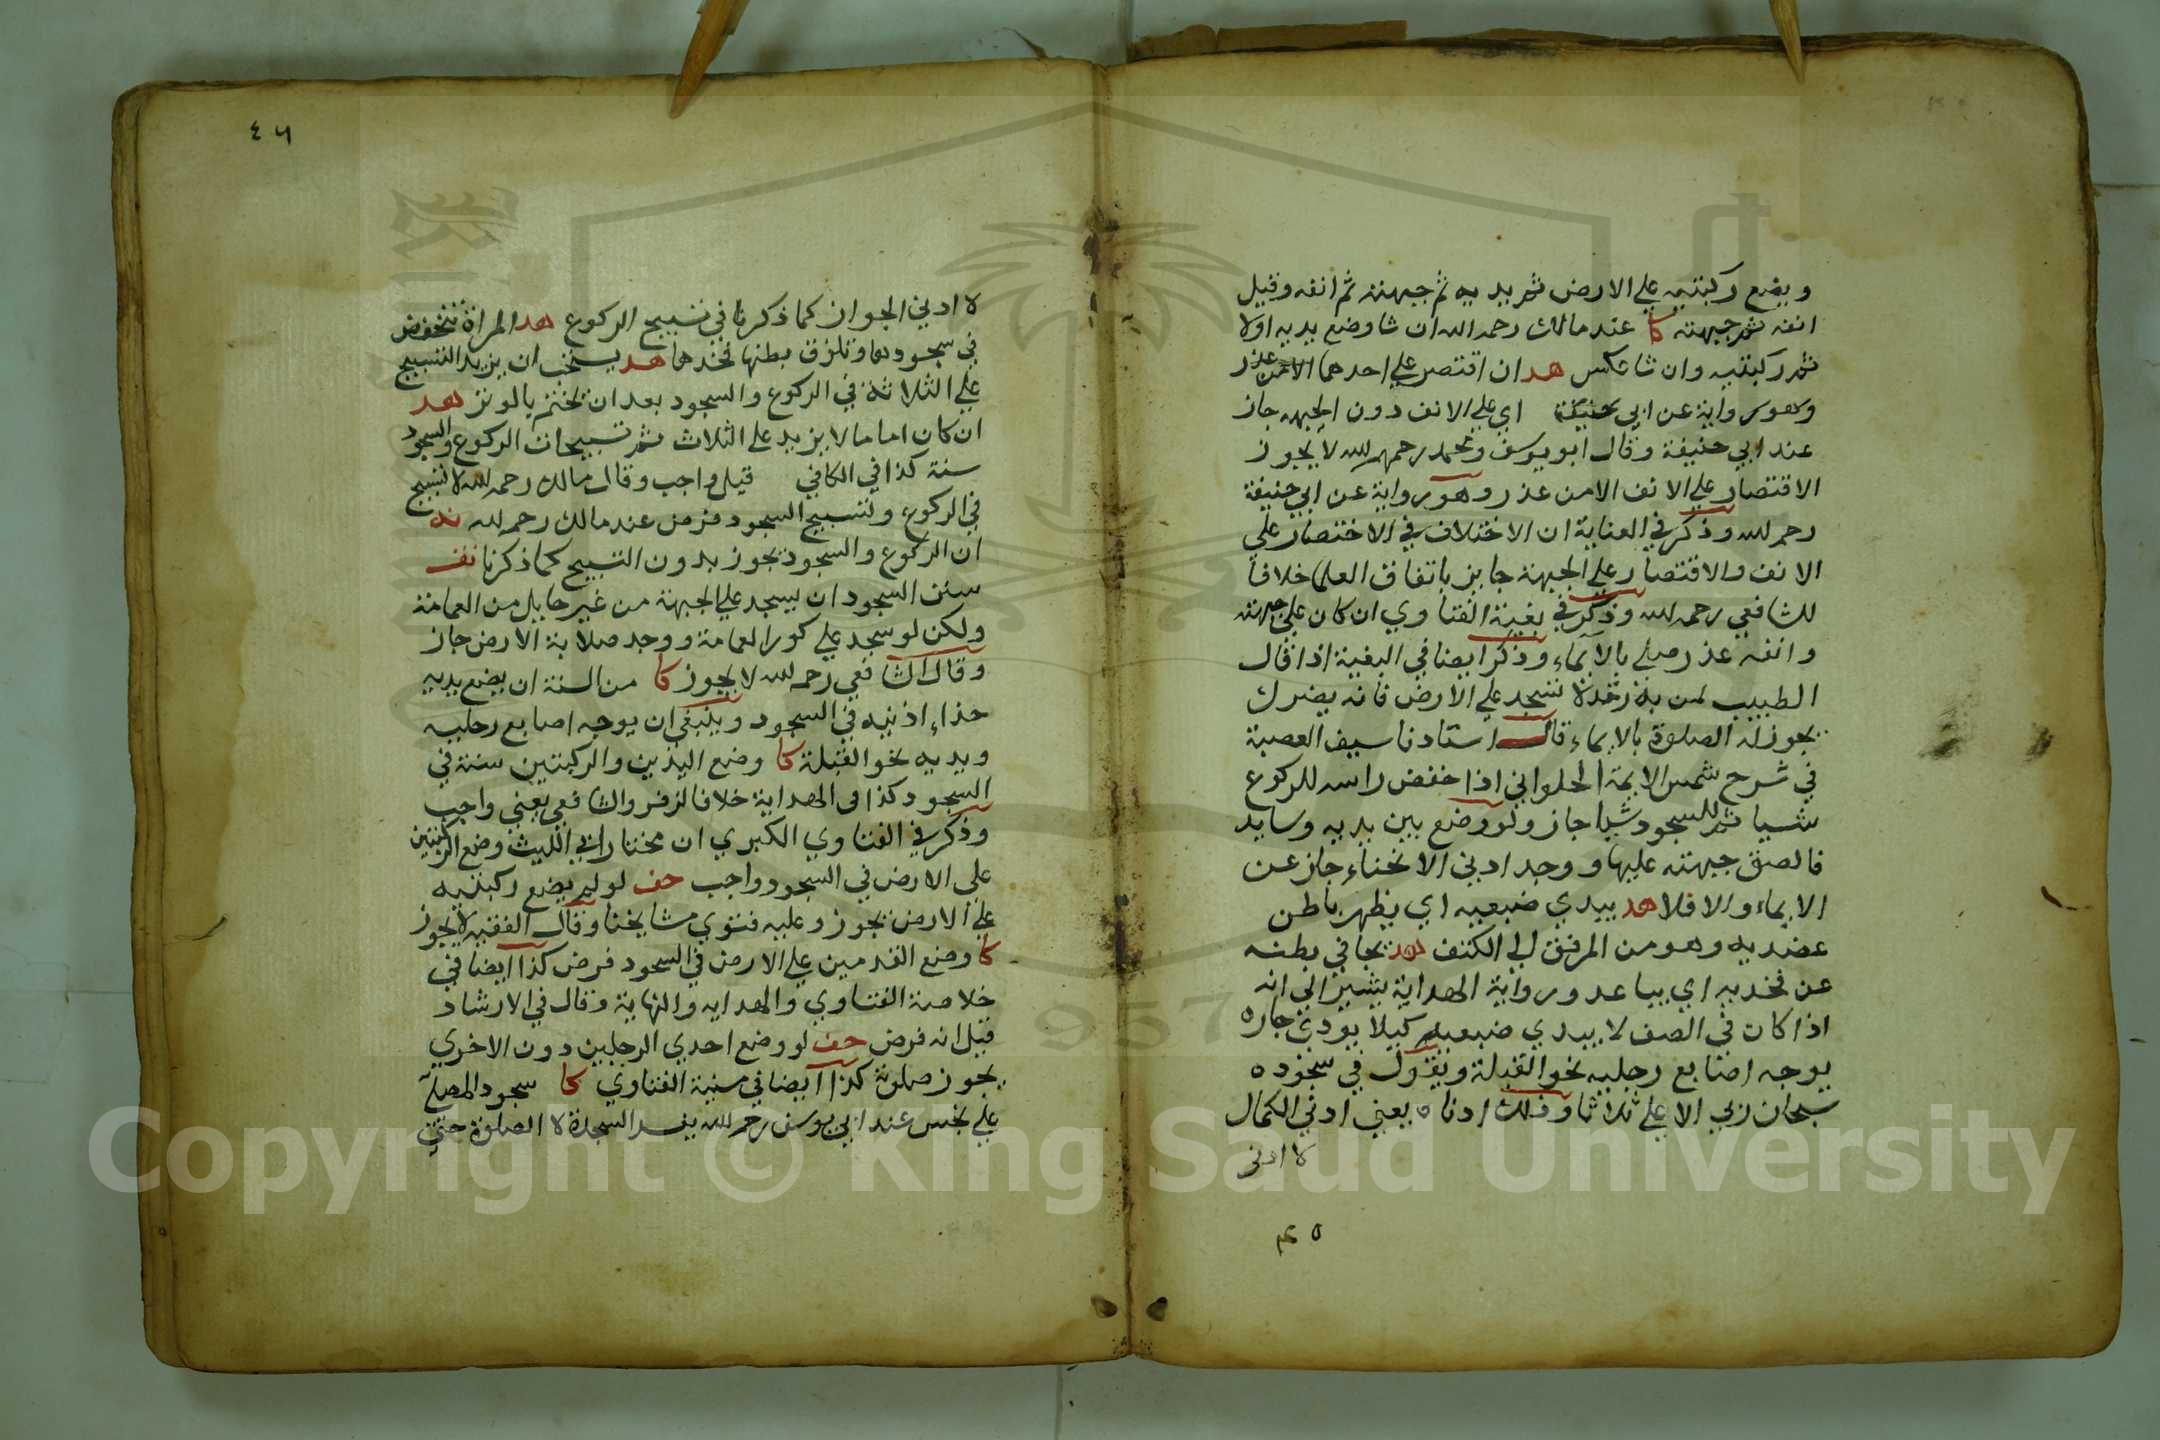 ويضع ركبتيه علي الارض ثم يديه ثم جبهته ثم انفه وقيل
انفه ثم جبهته كا عند مالك رحمه الله ان شا وضع يديه اولا
ثم ركبتيه وان شا عكس هد ان اقتصر علي احدهما الا من عذر
وهو رواية عن ابي حنيفة اي علي الانف دون الجبهه جاز
عند ابي حنيفة وقال ابو يوسف ومحمد رحمهم الله لا يجوز
الاقتصار علي الانف الا من عذر وهو رواية عن ابي حنيفة
رحمه الله وذكر في العناية ان الاختلاف في الاختصار علي
الانف والاقتصار علي الجبهة جايز باتفاق العلما خلافا
للشافعي رحمه الله وذكر في بغية الفتاوي ان كان علي جبهته
وانفه عذر صلي بالايماء وذكر ايضا في البغية اذا قال
الطبيب لمن به رمد لا تسجد علي الارض فانه يضرك
يجوز له الصلوة بالايماء قال استادنا سيف العصبة
في شرح شمس الايمة الحلواني اذا خفض راسه للركوع
شيا ثم للسجود شيا جاز ولو وضع بين يديه وسايد
فالصق جبهته عليها ووجد ادني الانحناء جاز عن
الايماء والا فلا هد يبدي ضبعيه اي يظهر باطن
عضديه وهو من المرفق الي الكتف هد يجافي بطنه
عن فخديه اي يباعد ورواية الهداية يشير الي انه
اذا كان في الصف لا يبدي ضبعيه كيلا يوذي جاره
يوجه اصابع رجليه نحو القبلة ويقول في سجوده
سبحان ربي الاعلي ثلاثا وذلك ادناه يعني ادني الكمال
لا ادني
٤٥
٤٦
لا ادني الجواز كما ذكرنا في تسبيح الركوع هد المراة تنخفض
في سجودها وتلزق بطنها فخدها هد يستحب ان يزيد التسبيح
علي الثلاثة في الركوع والسجود بعد ان يختم بالوتر هد
ان كان اماما لا يزيد علي الثلاث ثم تسبيحات الركوع والسجود
سنة كذا في الكافي قيل واجب وقال مالك رحمه الله لا تسبيح
في الركوع وتسبيح السجود فرض عند مالك رحمه الله
ان الركوع والسجود يجوز بدون التسبيح كما ذكرنا نف
سنن السجود ان يسجد علي الجبهة من غير حايل من العمامة
ولكن لو سجد علي كور العمامة ووجد صلابة الارض جاز
وقال الشافعي رحمه الله لا يجوز كا من السنة ان يضع يديه
حذاء اذنيه في السجود وينبغي ان يوجه اصابع رجليه
ويديه نحو القبلة كا وضع اليدين والركبتين سنة في
السجود كذا في الهداية خلافا لزفر والشافعي يعني واجب
وذكر في الفتاوي الكبري ان مختار ابي الليث وضع الركبتين
علي الارض في السجود واجب حف لو لم يضع ركبتيه
علي الارض يجوز وعليه فتوي مشايخنا وقال الفقيه لا يجوز
كا وضع القدمين علي الارض في السجود فرض كذا ايضا في
خلاصة الفتاوي والهدايه والنهاية وقال في الارشاد
قيل انه فرض حف لو وضع احدي الرجلين دون الاخري
يجوز صلوته كذا ايضا في منية الفتاوي كا سجود المصلي
علي نجس عند ابي يوسف رحمه الله يفسد السجدة لا الصلوة حتي
Copyright © King Saud University
1957